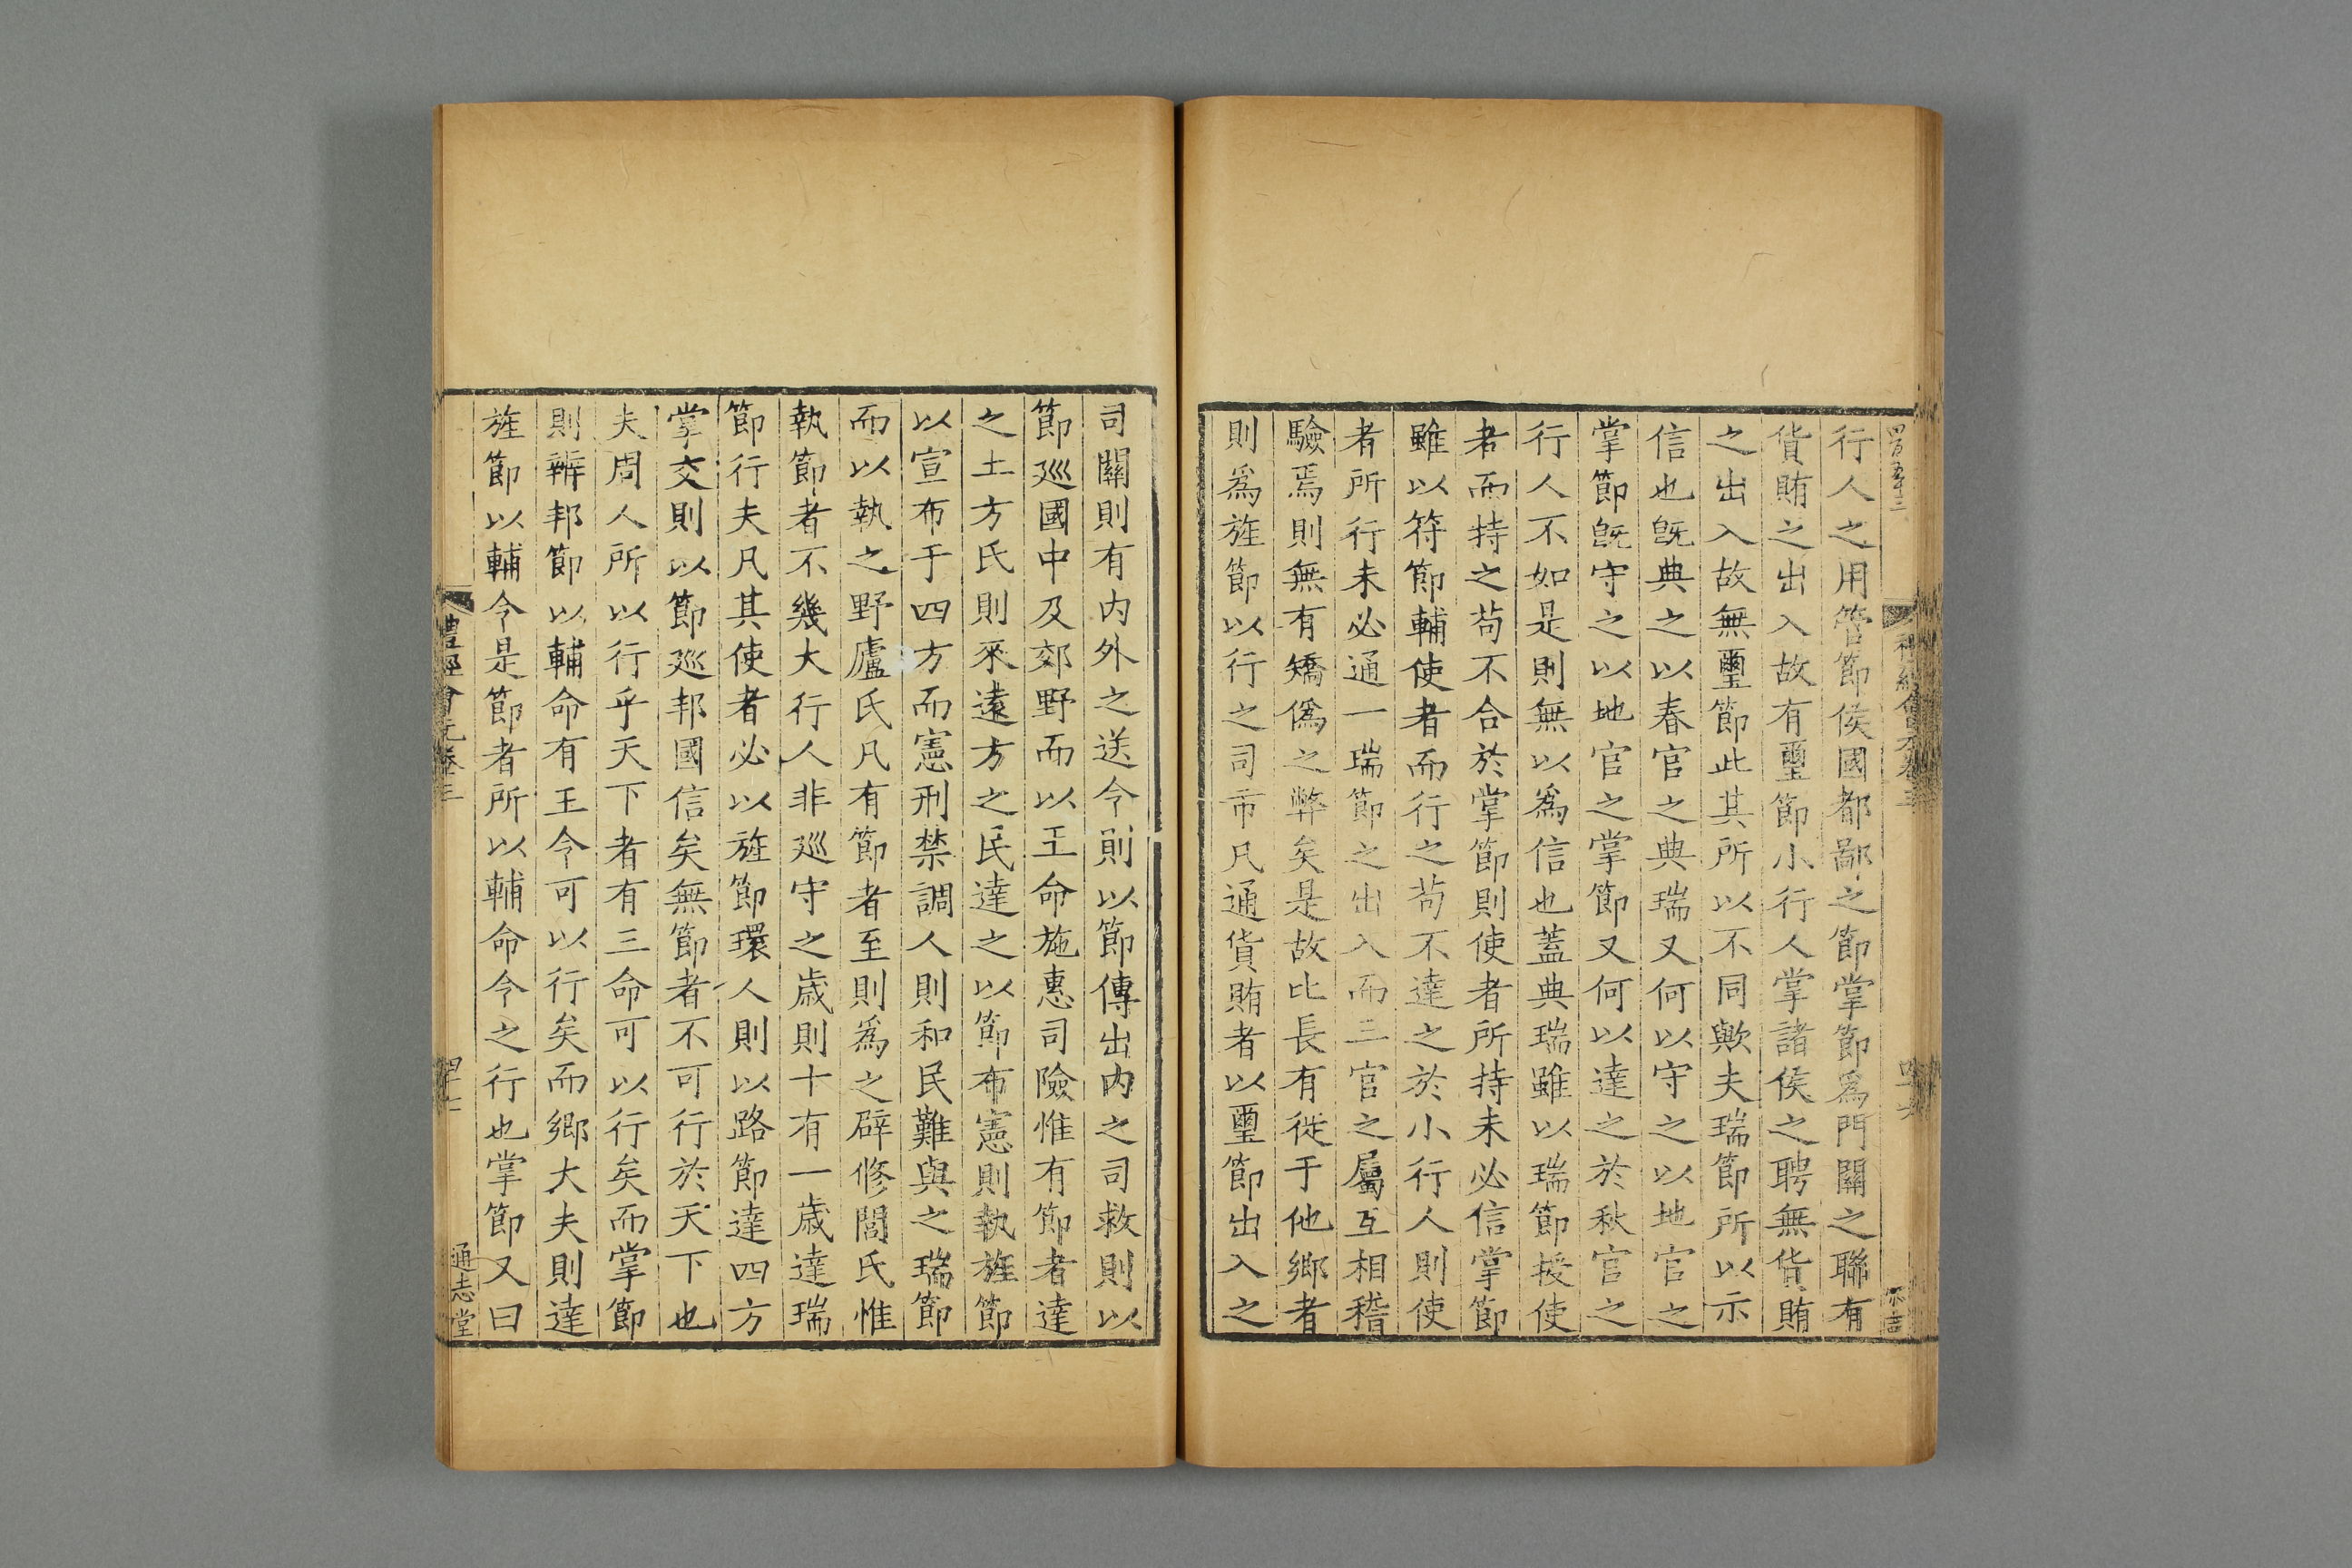 行人之用管節侯國都鄙之節掌節爲門關之聯有
貨賄之出入故有璽節小行人掌諸侯之聘無貨賄
之出入故無璽節此其所以不同歟夫瑞節所以示
信也旣典之以春官之典瑞又何以守之以地官之
掌節旣守之以地官之掌節又何以達之於秋官之
行人不如是則無以爲信也蓋典瑞雖以瑞節授使
者而持之苟不合於掌節則使者所持未必信掌節
雖以符節輔使者而行之苟不達之於小行人則使
者所行未必通一瑞節之出入而三官之屬互相稽
驗焉則無有矯僞之弊矣是故比長有徙于他鄉者
則爲旌節以行之司市凡通貨賄者以璽節出入之
司關則有內外之送令則以節傳出內之司救則以
節巡國中及郊野而以王命施惠司險惟有節者達
之土方氏則來遠方之民達之以節布憲則執旌節
以宣布于四方而憲刑禁調人則和民難與之瑞節
而以執之野廬氏凡有節者至則爲之辟修閭氏惟
執節者不幾大行人非巡守之歲則十有一歲達瑞
節行夫凡其使者必以旌節環人則以路節達四方
掌交則以節巡邦國信矣無節者不可行於天下也
夫周人所以行乎天下者有三命可以行矣而掌節
則辨邦節以輔命有王令可以行矣而鄉大夫則達
旌節以輔令是節者所以輔命令之行也掌節又曰
禮經會元卷三
通志堂